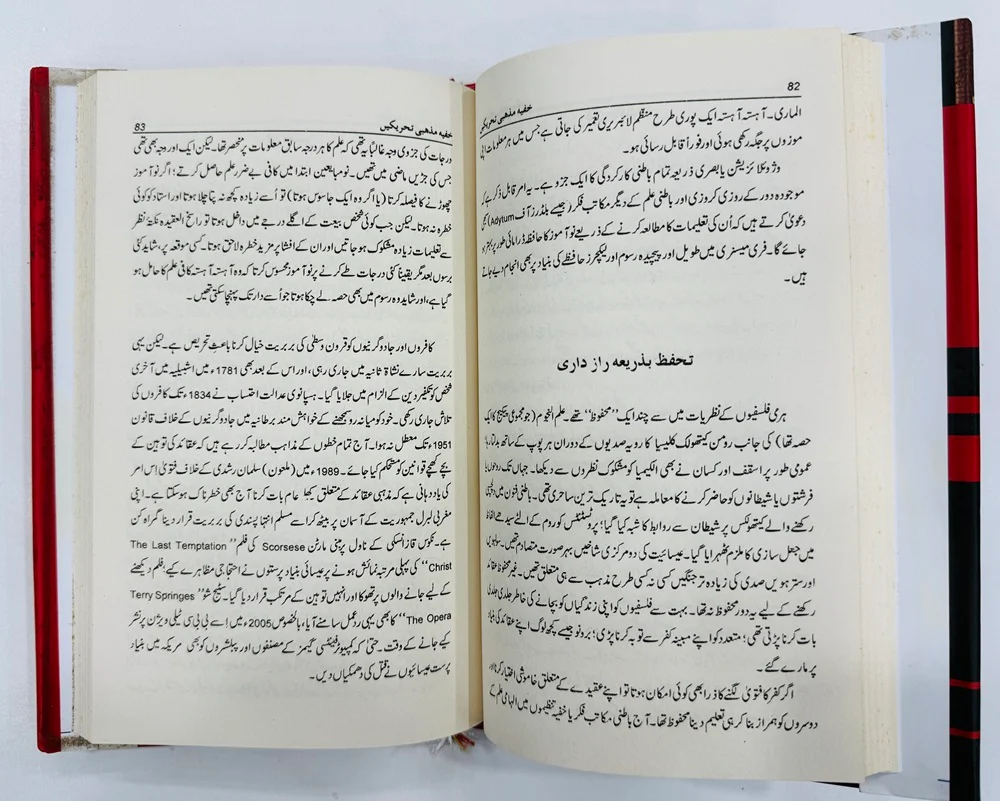 82
خفیہ مذہبی تحریکیں
الماری۔ آہستہ آہستہ ایک پوری طرح منظم لائبریری تعمیر کی جاتی ہے جس میں ہر معلومات اپنی
موزوں پر جگہ رکھی ہوئی اور فوراً قابل رسائی ہو۔
وژولائزیشن یا بصری ذریعہ تمام باطنی کارکردگی کا ایک جزو ہے۔ یہ امر قابل ذکر ہے کہ
موجودہ دور کے روزی کروزی اور باطنی علم کے دیگر مکاتب فکر (جیسے بلڈرز آف Adytum) بھی
دعویٰ کرتے ہیں کہ اُن کی تعلیمات کا مطالعہ کرنے کے ذریعے نو آموز کا حافظہ ڈرامائی طور پر بہتر ہو
جائے گا۔ فری میسنری میں طویل اور پیچیدہ رسوم اور لیکچرز حافظے کی بنیاد پر بھی انجام دیے جاتے
ہیں۔
تحفظ بذریعہ راز داری
ہرمی فلسفیوں کے نظریات میں سے چند ایک ”محفوظ“ تھے۔ علم النجوم (جو مجموعی پیکیج کا ایک
حصہ تھا) کی جانب رومن کیتھولک کلیسیا کا رویہ صدیوں کے دوران ہر پوپ کے ساتھ بدلتا رہا۔
عمومی طور پر اسقف اور کسان نے بھی الکیمیا کو مشکوک نظروں سے دیکھا۔ جہاں تک روحوں یا
فرشتوں یا شیطانوں کو حاضر کرنے کا معاملہ ہے تو یہ تاریک ترین ساحری تھی۔ باطنی فنون میں دلچسپی
رکھنے والے کیتھولکس پر شیطان سے روابط کا شبہ کیا گیا؛ پروٹسٹنٹس کو روم کے لئے سیدھے الفاظ
میں جعل سازی کا ملزم ٹھہرایا گیا۔ عیسائیت کی دو مرکزی شاخیں بہر صورت متصادم تھیں۔ سولہویں
اور سترہویں صدی کی زیادہ تر جنگیں کسی نہ کسی طرح مذہب سے ہی متعلق تھیں۔ غیر محفوظ عقائد
رکھنے کے لیے یہ دور محفوظ نہ تھا۔ بہت سے فلسفیوں کو اپنی زندگیاں کو بچانے کی خاطر جلدی جلدی
بات کرنا پڑتی تھی؛ متعدد کو اپنے مبینہ کفر سے توبہ کرنا پڑی؛ برونو جیسے کچھ لوگ اپنے عقائد کی بنیاد
پر مارے گئے۔
اگر کفر کا فتویٰ لگنے کا ذرا بھی کوئی امکان ہوتا تو اپنے عقیدے کے متعلق خاموشی اختیار کرنا اور
دوسروں کو ہمراز بنا کر ہی تعلیم دینا محفوظ تھا۔ آج باطنی مکاتب فکر یا خفیہ تنظیموں میں الہامی علم کے
خفیہ مذہبی تحریکیں
83
درجات کی جزوی وجہ غالباً یہ تھی کہ علم کا ہر درجہ سابق معلومات پر منحصر تھا۔ لیکن ایک اور وجہ بھی تھی
جس کی جڑیں ماضی میں تھیں۔ نومبایعین ابتدا میں کافی بے ضرر علم حاصل کرتے؛ اگر نو آموز
چھوڑنے کا فیصلہ کرتا (یا اگر وہ ایک جاسوس ہوتا) تو اُسے زیادہ کچھ نہ پتا چلا ہوتا اور استاد کو کوئی
خطرہ نہ ہوتا۔ لیکن جب کوئی شخص بیعت کے اگلے درجے میں داخل ہوتا تو راسخ العقیدہ نکتۂ نظر
سے تعلیمات زیادہ مشکوک ہو جاتیں اور ان کے افشا پر مزید خطرہ لاحق ہوتا۔ کسی موقعہ پر، شاید کئی
برسوں بعد مگر یقیناً کئی درجات طے کرنے پر نو آموز محسوس کرتا کہ وہ آہستہ آہستہ کافی علم کا حامل ہو
گیا ہے، اور شاید وہ رسوم میں بھی حصہ لے چکا ہوتا جو اُسے دار تک پہنچا سکتی تھیں۔
کافروں اور جادوگرنیوں کو قرون وسطٰی کی بربریت خیال کرنا باعث تحریص ہے۔ لیکن یہی
بربریت سارے نشاۃ ثانیہ میں جاری رہی، اور اس کے بعد بھی 1781ء میں اشبیلیہ میں آخری
شخص کو تکفیر دین کے الزام میں جلایا گیا۔ ہسپانوی عدالت احتساب نے 1834ء تک کافروں کی
تلاش جاری رکھی۔ خود کو میانہ رو سمجھنے کے خواہش مند برطانیہ میں جادوگرنیوں کے خلاف قانون
1951ء تک معطل نہ ہوا۔ آج تمام خطوں کے مذاہب مطالبہ کر رہے ہیں کہ عقائد کی توہین کے
بچے کھچے قوانین کو مستحکم کیا جائے۔ 1989ء میں (ملعون) سلمان رشدی کے خلاف فتویٰ اس امر
کی یاد دہانی ہے کہ مذہبی عقائد کے متعلق کھلا عام بات کرنا آج بھی خطرناک ہو سکتا ہے۔ اپنی
مغربی لبرل جمہوریت کے آسمان پر بیٹھ کر اسے مسلم انتہا پسندی کی بربریت قرار دینا گمراہ کن
ہے۔ نکوس قازانسکی کے ناول پر مبنی مارٹن Scorsese کی فلم ”The Last Temptation
Christ“ کی پہلی مرتبہ نمائش ہونے پر عیسائی بنیاد پرستوں نے احتجاجی مظاہرے کیے، فلم دیکھنے
کے لیے جانے والوں پر تھوکا اور انہیں توہین کے مرتکب قرار دیا گیا۔ سٹیج شو ”Terry Springes
The Opera“ کا بھی یہی ردعمل سامنے آیا، بالخصوص 2005ء میں اِسے بی بی سی ٹیلی ویژن پر نشر
کیے جانے کے وقت۔ حتیٰ کہ کمپیوٹر فینٹسی گیمز کے مصنفوں اور پبلشروں کو بھی مریکہ میں بنیاد
پرست عیسائیوں نے قتل کی دھمکیاں دیں۔